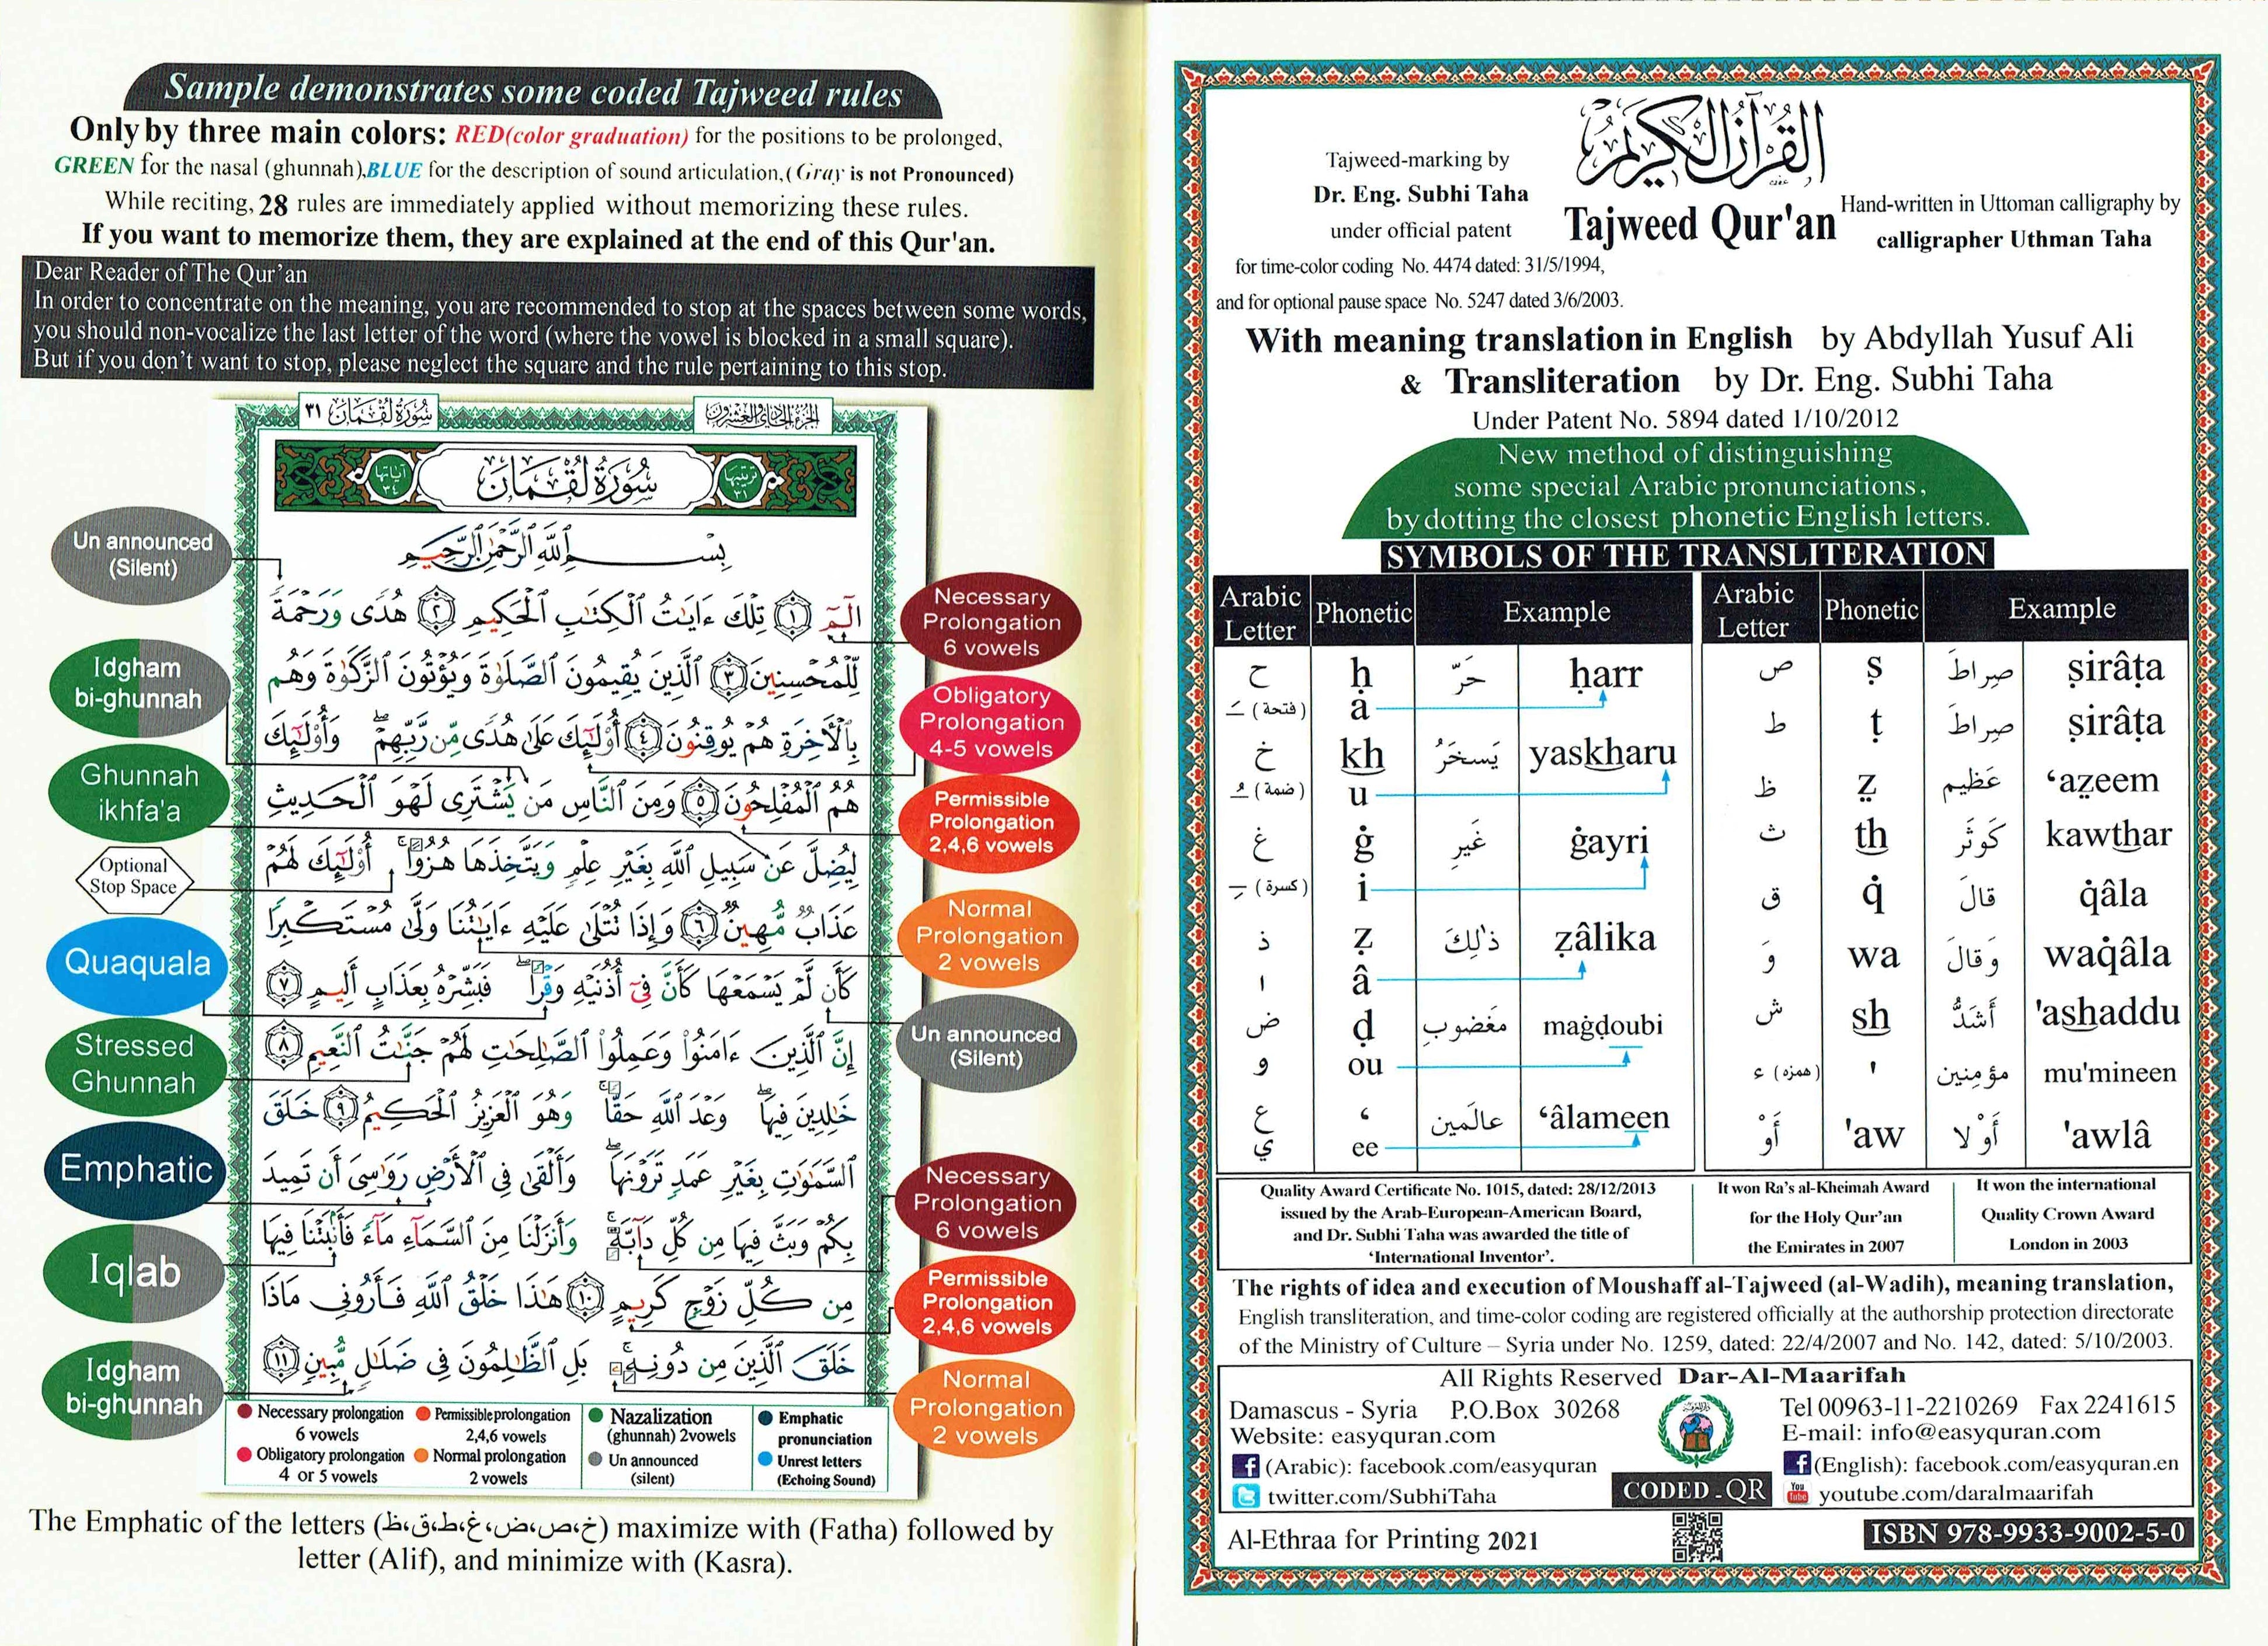 Sample demonstrates some coded Tajweed rules
Only by three main colors: RED(color graduation) for the positions to be prolonged,
GREEN for the nasal (ghunnah),BLUE for the description of sound articulation,( Gray is not Pronounced)
While reciting, 28 rules are immediately applied without memorizing these rules.
If you want to memorize them, they are explained at the end of this Qur'an.
Dear Reader of The Qur'an
In order to concentrate on the meaning, you are recommended to stop at the spaces between some words,
you should non-vocalize the last letter of the word (where the vowel is blocked in a small square).
But if you don't want to stop, please neglect the square and the rule pertaining to this stop.
سُورَةُ لُقْمَان ٣١
الجزء الحادي والعشرون
ترتيبها ٣١
سُورَةُ لُقْمَان
آياتها ٣٤
بِسْمِ اللَّهِ الرَّحْمَٰنِ الرَّحِيمِ
الٓمٓ ١ تِلْكَ ءَايَٰتُ الْكِتَٰبِ الْحَكِيمِ ٢ هُدًى وَرَحْمَةً
لِّلْمُحْسِنِينَ ٣ الَّذِينَ يُقِيمُونَ الصَّلَوٰةَ وَيُؤْتُونَ الزَّكَوٰةَ وَهُم
بِالْأَخِرَةِ هُمْ يُوقِنُونَ ٤ أُوْلَٰٓئِكَ عَلَىٰ هُدًى مِّن رَّبِّهِمْ وَأُوْلَٰٓئِكَ
هُمُ الْمُفْلِحُونَ ٥ وَمِنَ النَّاسِ مَن يَشْتَرِى لَهْوَ الْحَدِيثِ
لِيُضِلَّ عَن سَبِيلِ اللَّهِ بِغَيْرِ عِلْمٍ وَيَتَّخِذَهَا هُزُوًا أُوْلَٰٓئِكَ لَهُمْ
عَذَابٌ مُّهِينٌ ٦ وَإِذَا تُتْلَىٰ عَلَيْهِ ءَايَٰتُنَا وَلَّىٰ مُسْتَكْبِرًا
كَأَن لَّمْ يَسْمَعْهَا كَأَنَّ فِىٓ أُذُنَيْهِ وَقْرًا فَبَشِّرْهُ بِعَذَابٍ أَلِيمٍ ٧
إِنَّ الَّذِينَ ءَامَنُوا وَعَمِلُوا الصَّٰلِحَٰتِ لَهُمْ جَنَّٰتُ النَّعِيمِ ٨
خَٰلِدِينَ فِيهَا وَعْدَ اللَّهِ حَقًّا وَهُوَ الْعَزِيزُ الْحَكِيمُ ٩ خَلَقَ
السَّمَٰوَٰتِ بِغَيْرِ عَمَدٍ تَرَوْنَهَا وَأَلْقَىٰ فِى الْأَرْضِ رَوَٰسِىَ أَن تَمِيدَ
بِكُمْ وَبَثَّ فِيهَا مِن كُلِّ دَآبَّةٍ وَأَنزَلْنَا مِنَ السَّمَآءِ مَآءً فَأَنۢبَتْنَا فِيهَا
مِن كُلِّ زَوْجٍ كَرِيمٍ ١٠ هَٰذَا خَلْقُ اللَّهِ فَأَرُونِى مَاذَا
خَلَقَ الَّذِينَ مِن دُونِهِ بَلِ الظَّٰلِمُونَ فِى ضَلَٰلٍ مُّبِينٍ ١١
Un announced
(Silent)
Idgham
bi-ghunnah
Ghunnah
ikhfa'a
Optional
Stop Space
Quaquala
Stressed
Ghunnah
Emphatic
Iqlab
Idgham
bi-ghunnah
Necessary
Prolongation
6 vowels
Obligatory
Prolongation
4-5 vowels
Permissible
Prolongation
2,4,6 vowels
Normal
Prolongation
2 vowels
Un announced
(Silent)
Necessary
Prolongation
6 vowels
Permissible
Prolongation
2,4,6 vowels
Normal
Prolongation
2 vowels
Necessary prolongation
6 vowels
Permissible prolongation
2,4,6 vowels
Nazalization
(ghunnah) 2vowels
Emphatic
pronunciation
Obligatory prolongation
4 or 5 vowels
Normal prolongation
2 vowels
Un announced
(silent)
Unrest letters
(Echoing Sound)
The Emphatic of the letters (خ،ص،ض،غ،ط،ق،ظ) maximize with (Fatha) followed by
letter (Alif), and minimize with (Kasra).
القرآن الكريم
Tajweed Qur'an
Tajweed-marking by
Dr. Eng. Subhi Taha
under official patent
for time-color coding No. 4474 dated: 31/5/1994,
and for optional pause space No. 5247 dated 3/6/2003.
Hand-written in Uttoman calligraphy by
calligrapher Uthman Taha
With meaning translation in English by Abdyllah Yusuf Ali
& Transliteration by Dr. Eng. Subhi Taha
Under Patent No. 5894 dated 1/10/2012
New method of distinguishing
some special Arabic pronunciations,
by dotting the closest phonetic English letters.
SYMBOLS OF THE TRANSLITERATION
Arabic Letter Phonetic Example
ح ḥ حَرّ ḥarr
(فتحة) a
خ kh يَسخَرُ yaskharu
(ضمة) u
غ ġ غَيرِ ġayri
(كسرة) i
ذ ẓ ذٰلِكَ ẓâlika
ا â
ض ḍ مَغضوبِ maġḍoubi
و ou
ع ‘ عالَمين ‘âlameen
ي ee
Arabic Letter Phonetic Example
ص ṣ صِراطَ ṣirâṭa
ط ṭ صِراطَ ṣirâṭa
ظ ẓ عَظيم ‘aẓeem
ث th كَوثَر kawthar
ق q̇ قالَ q̇âla
وَ wa وَقالَ waq̇âla
ش sh أَشَدُّ 'ashaddu
ء (همزه) ' مؤمِنين mu'mineen
أَوْ 'aw أَوْلا 'awlâ
Quality Award Certificate No. 1015, dated: 28/12/2013
issued by the Arab-European-American Board,
and Dr. Subhi Taha was awarded the title of
‘International Inventor’.
It won Ra's al-Kheimah Award
for the Holy Qur'an
the Emirates in 2007
It won the international
Quality Crown Award
London in 2003
The rights of idea and execution of Moushaff al-Tajweed (al-Wadih), meaning translation,
English transliteration, and time-color coding are registered officially at the authorship protection directorate
of the Ministry of Culture – Syria under No. 1259, dated: 22/4/2007 and No. 142, dated: 5/10/2003.
All Rights Reserved Dar-Al-Maarifah
Damascus - Syria P.O.Box 30268
Website: easyquran.com
(Arabic): facebook.com/easyquran
twitter.com/SubhiTaha
Tel 00963-11-2210269 Fax 2241615
E-mail: info@easyquran.com
(English): facebook.com/easyquran.en
CODED - QR
You Tube youtube.com/daralmaarifah
Al-Ethraa for Printing 2021
ISBN 978-9933-9002-5-0